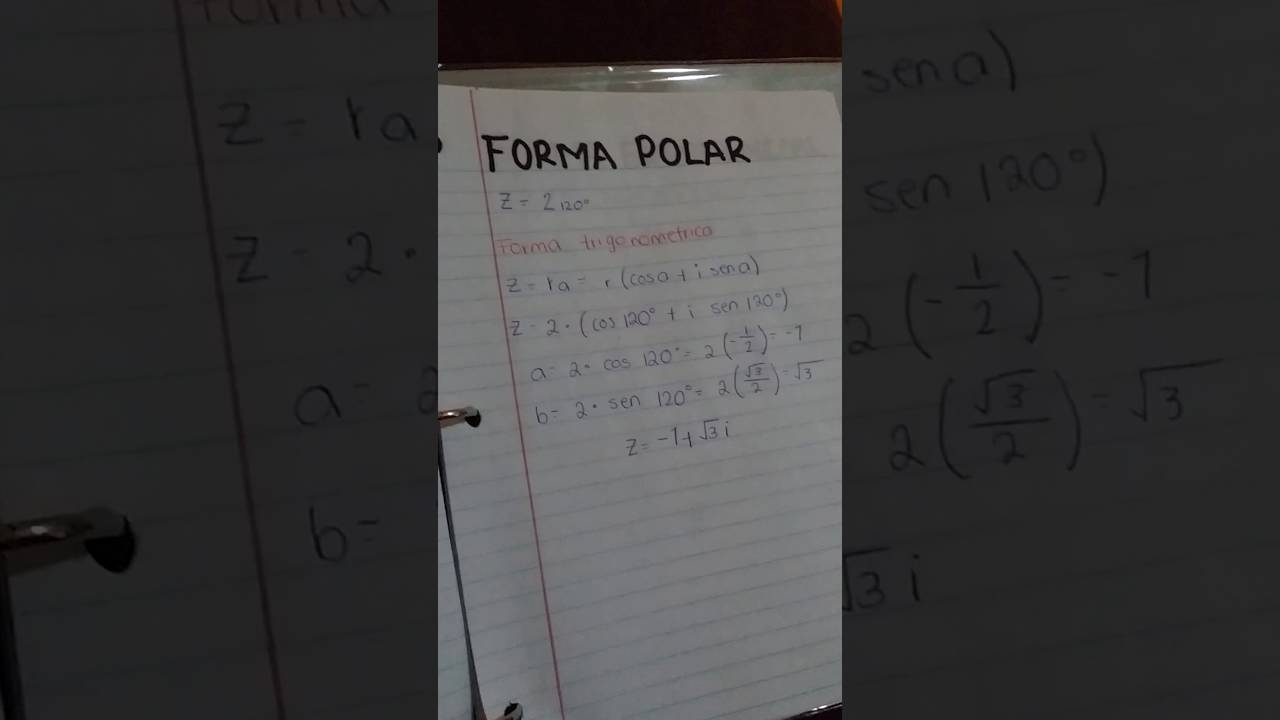 FORMA POLAR
z = 2₁₂₀°
Forma trigonometrica
z = ra = r (cos a + i sen a)
z = 2 · (cos 120° + i sen 120°)
a = 2 · cos 120° = 2 (-1/2) = -1
b = 2 · sen 120° = 2 (√3/2) = √3
z = -1 + √3 i